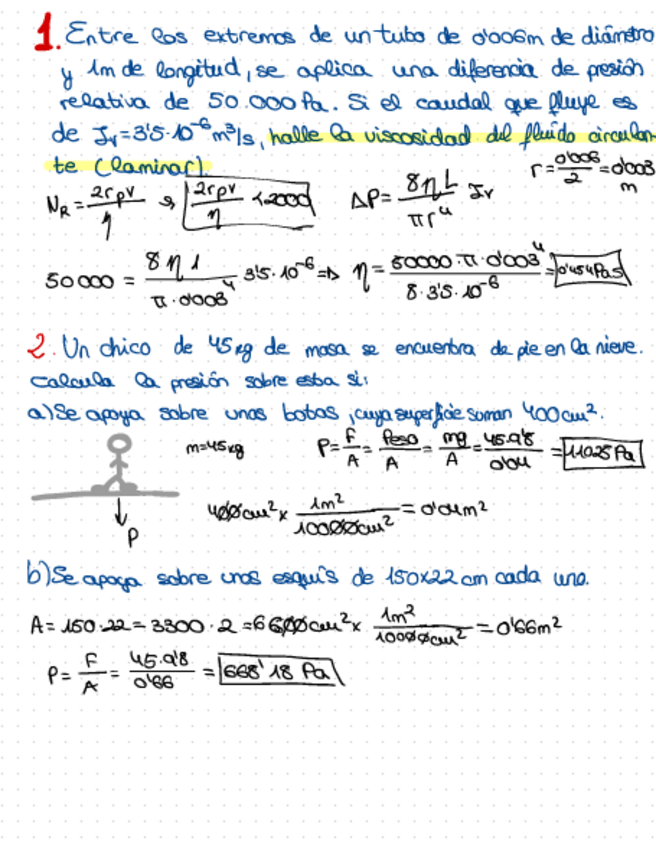 1. Entre los extremos de un tubo de 0'006m de diámetro
y 1m de longitud, se aplica una diferencia de presión
relativa de 50.000 Pa. Si el caudal que fluye es
de Jv=3'5·10^-6 m³/s, halle la viscosidad del fluido circulan-
te (laminar).
r = 0'006/2 = 0'003 m
N_R = 2rρv/η → 2rρv/η < 2000   ΔP = 8ηL/πr⁴ Jv
50000 = 8η1/π·0'003⁴ 3'5·10^-6 => η = 50000·π·0'003⁴/8·3'5·10^-6 = 0'454 Pa s
2. Un chico de 45 kg de masa se encuentra de pie en la nieve.
Calcula la presión sobre esta si:
a) Se apoya sobre unas botas, cuya superficie suman 400 cm².
m=45kg   P = F/A = Peso/A = mg/A = 45·9'8/0'04 = 11025 Pa
400 cm² x 1m²/10000 cm² = 0'04 m²
P
b) Se apoya sobre unos esquís de 150x22 cm cada uno.
A = 150·22 = 3300·2 = 6600 cm² x 1m²/10000 cm² = 0'66 m²
P = F/A = 45·9'8/0'66 = 668'18 Pa